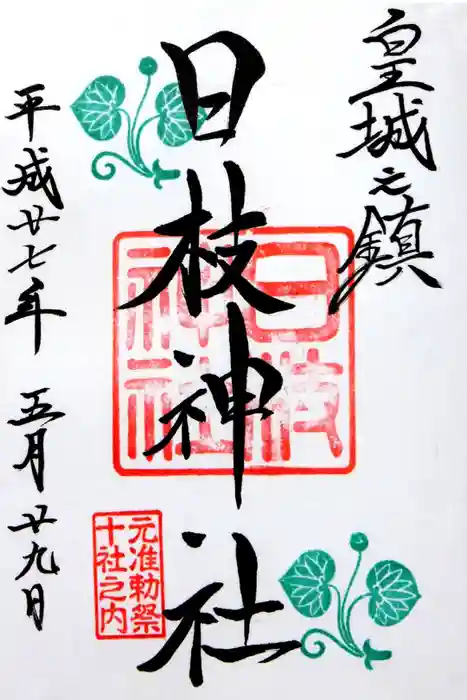 皇城之鎮
日枝神社
日枝神社
元准勅祭
十社之内
平成廿七年 五月廿九日